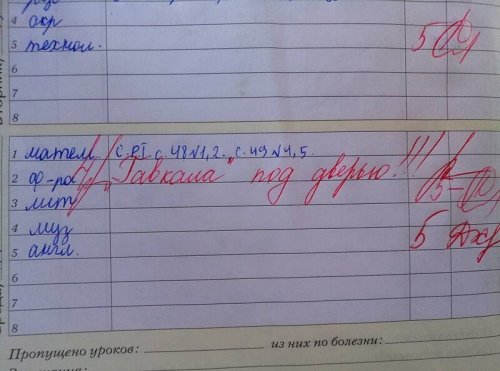 4 окр
5 технол. 5
6
7
8
1 матем. с. РТ с. 48 №1,2. с. 49 №4,5.
2 ф-ра "Гавкала" под дверью!!!
3 лит 5-
4 муз
5 англ. 5
6
7
8
Пропущено уроков: из них по болезни: